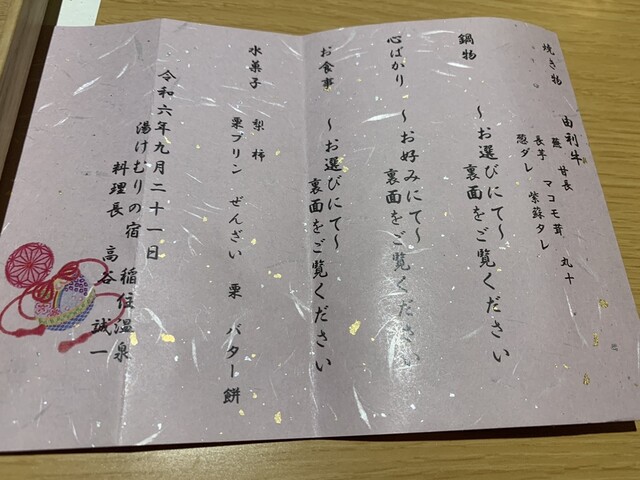 焼き物
由利牛
蕪 甘長 マコモ茸 丸十
長芋 紫蘇タレ
葱ダレ
鍋物
～お選びにて～
裏面をご覧ください
心ばかり
～お好みにて～
裏面をご覧ください
お食事
～お選びにて～
裏面をご覧ください
水菓子
梨 柿
栗プリン ぜんざい 栗 バター餅
令和六年九月二十一日
湯けむりの宿 稲住温泉
料理長 高谷 誠一